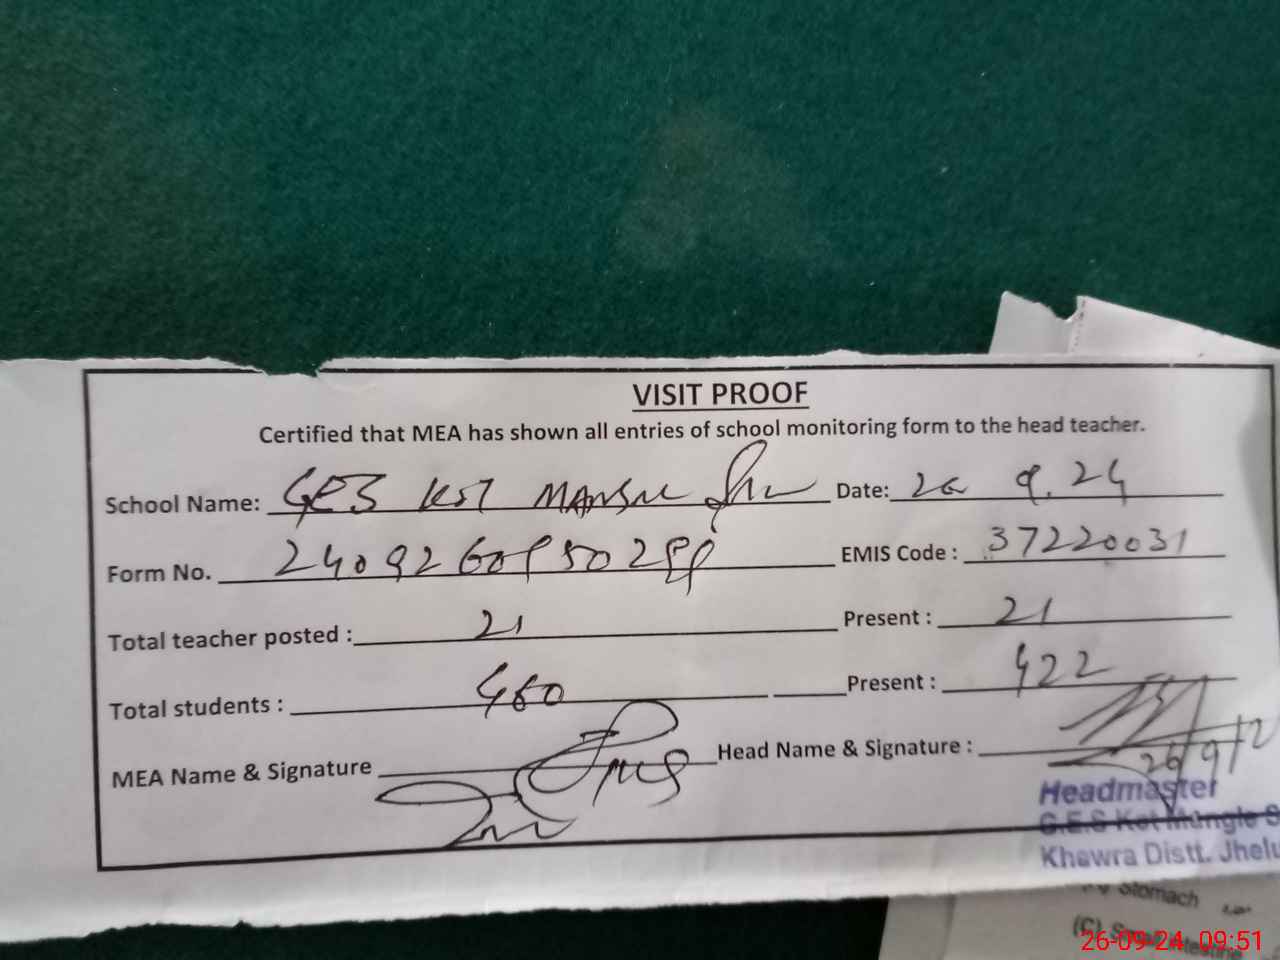 VISIT PROOF
Certified that MEA has shown all entries of school monitoring form to the head teacher.
School Name: GES Date: 26 9.24
Form No. EMIS Code : 37220031
Total teacher posted : 21 Present : 21
Total students : 460 Present : 422
MEA Name & Signature Head Name & Signature :
26/9/2
Headmaster
G.E.S Kot Mungle S
Khewra Distt. Jhelu
Stomach
(C)
26-09-24 09:51